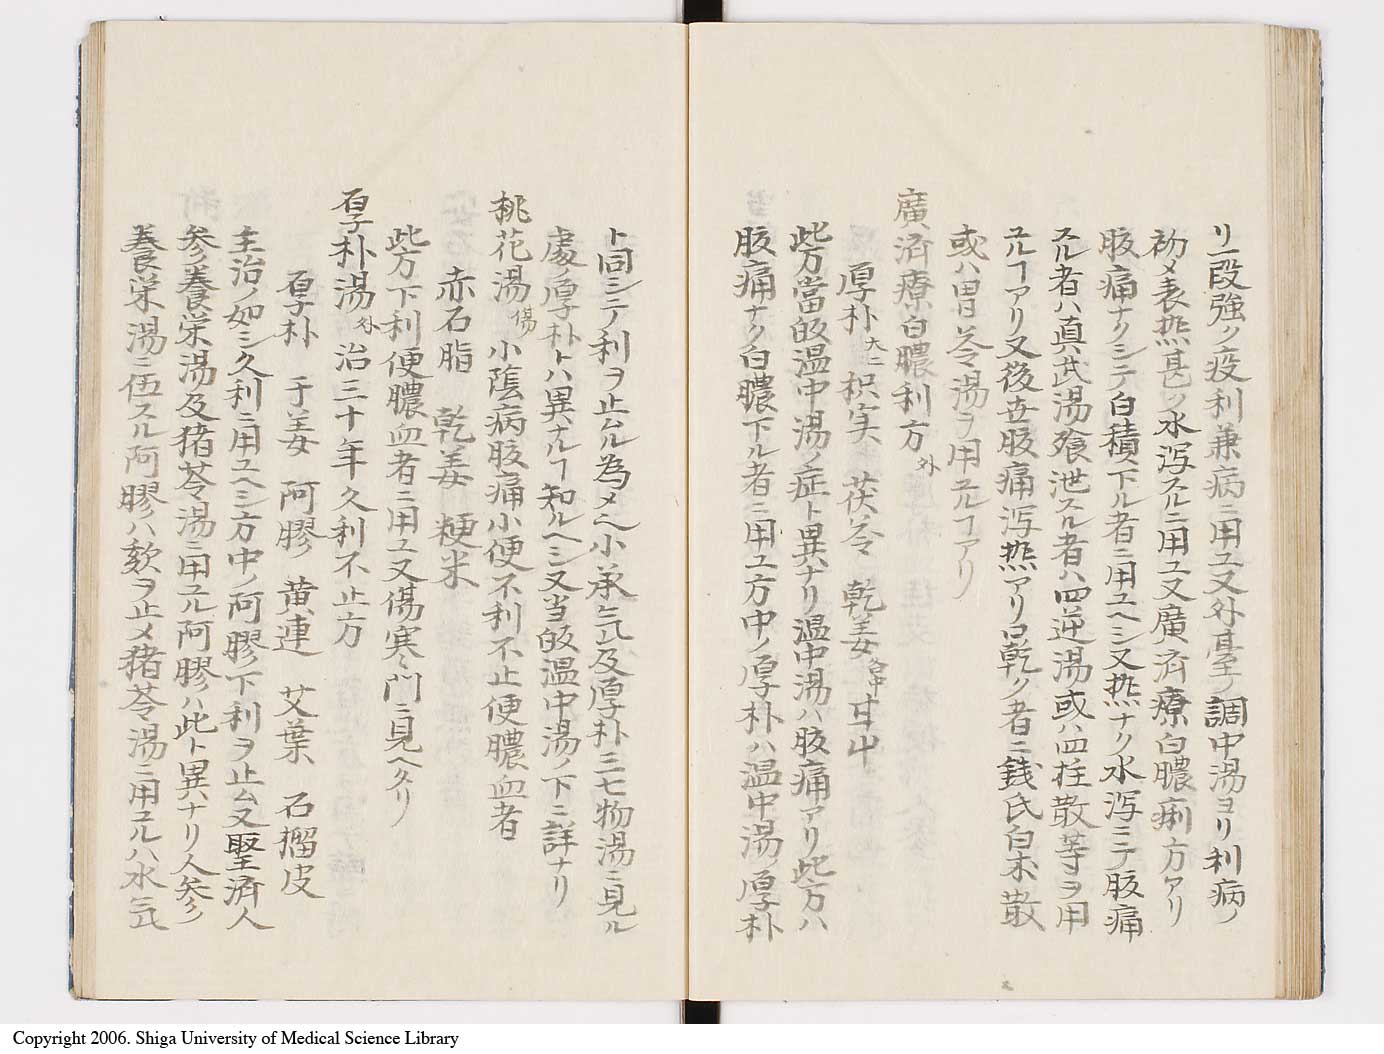 リ一段強ク疫利兼病ニ用ユ又外臺ノ調中湯ヨリ利病ノ
初メ表熱甚ク水瀉スルニ用ユ又廣済療白膿痢方アリ
腹痛ナクシテ白積下ル者ニ用ユヘシ又熱ナク水瀉ミテ腹痛
スル者ハ真武湯飱泄スル者ハ四逆湯或ハ四柱散等ヲ用
ユルヿアリ又後世腹痛瀉熱アリ口乾ク者ニ銭氏白朮散
或ハ胃苓湯ヲ用ユルヿアリ
廣済療白膿利方外
厚朴大二 枳実 茯苓 乾姜各中 甘中
此方當的温中湯ノ症ト異ナリ温中湯ハ腹痛アリ此方ハ
腹痛ナク白膿下ル者ニ用ユ方中ノ厚朴ハ温中湯ノ厚朴
ト同シテ利ヲ止ムル為メヘ小承气及厚朴三七物湯ニ見ル
處ノ厚朴トハ異ナルヿ知ルヘシ又当的温中湯ノ下ニ詳ナリ
桃花湯傷 小陰病腹痛小便不利不止便膿血者
赤石脂 乾姜 粳米
此方下利便膿血者ニ用ユ又傷寒門ニ見ヘタリ
厚朴湯外 治三十年久利不止方
厚朴 干姜 阿膠 黄連 艾葉 石榴皮
主治ノ如ミ久利ニ用ユヘシ方中ノ阿膠下利ヲ止ム又聖済人
参養栄湯及猪苓湯ニ用ユル阿膠ハ此ト異ナリ人参ノ
養栄湯ニ伍スル阿膠ハ欬ヲ止メ猪苓湯ニ用ユルハ水气
Copyright 2006. Shiga University of Medical Science Library